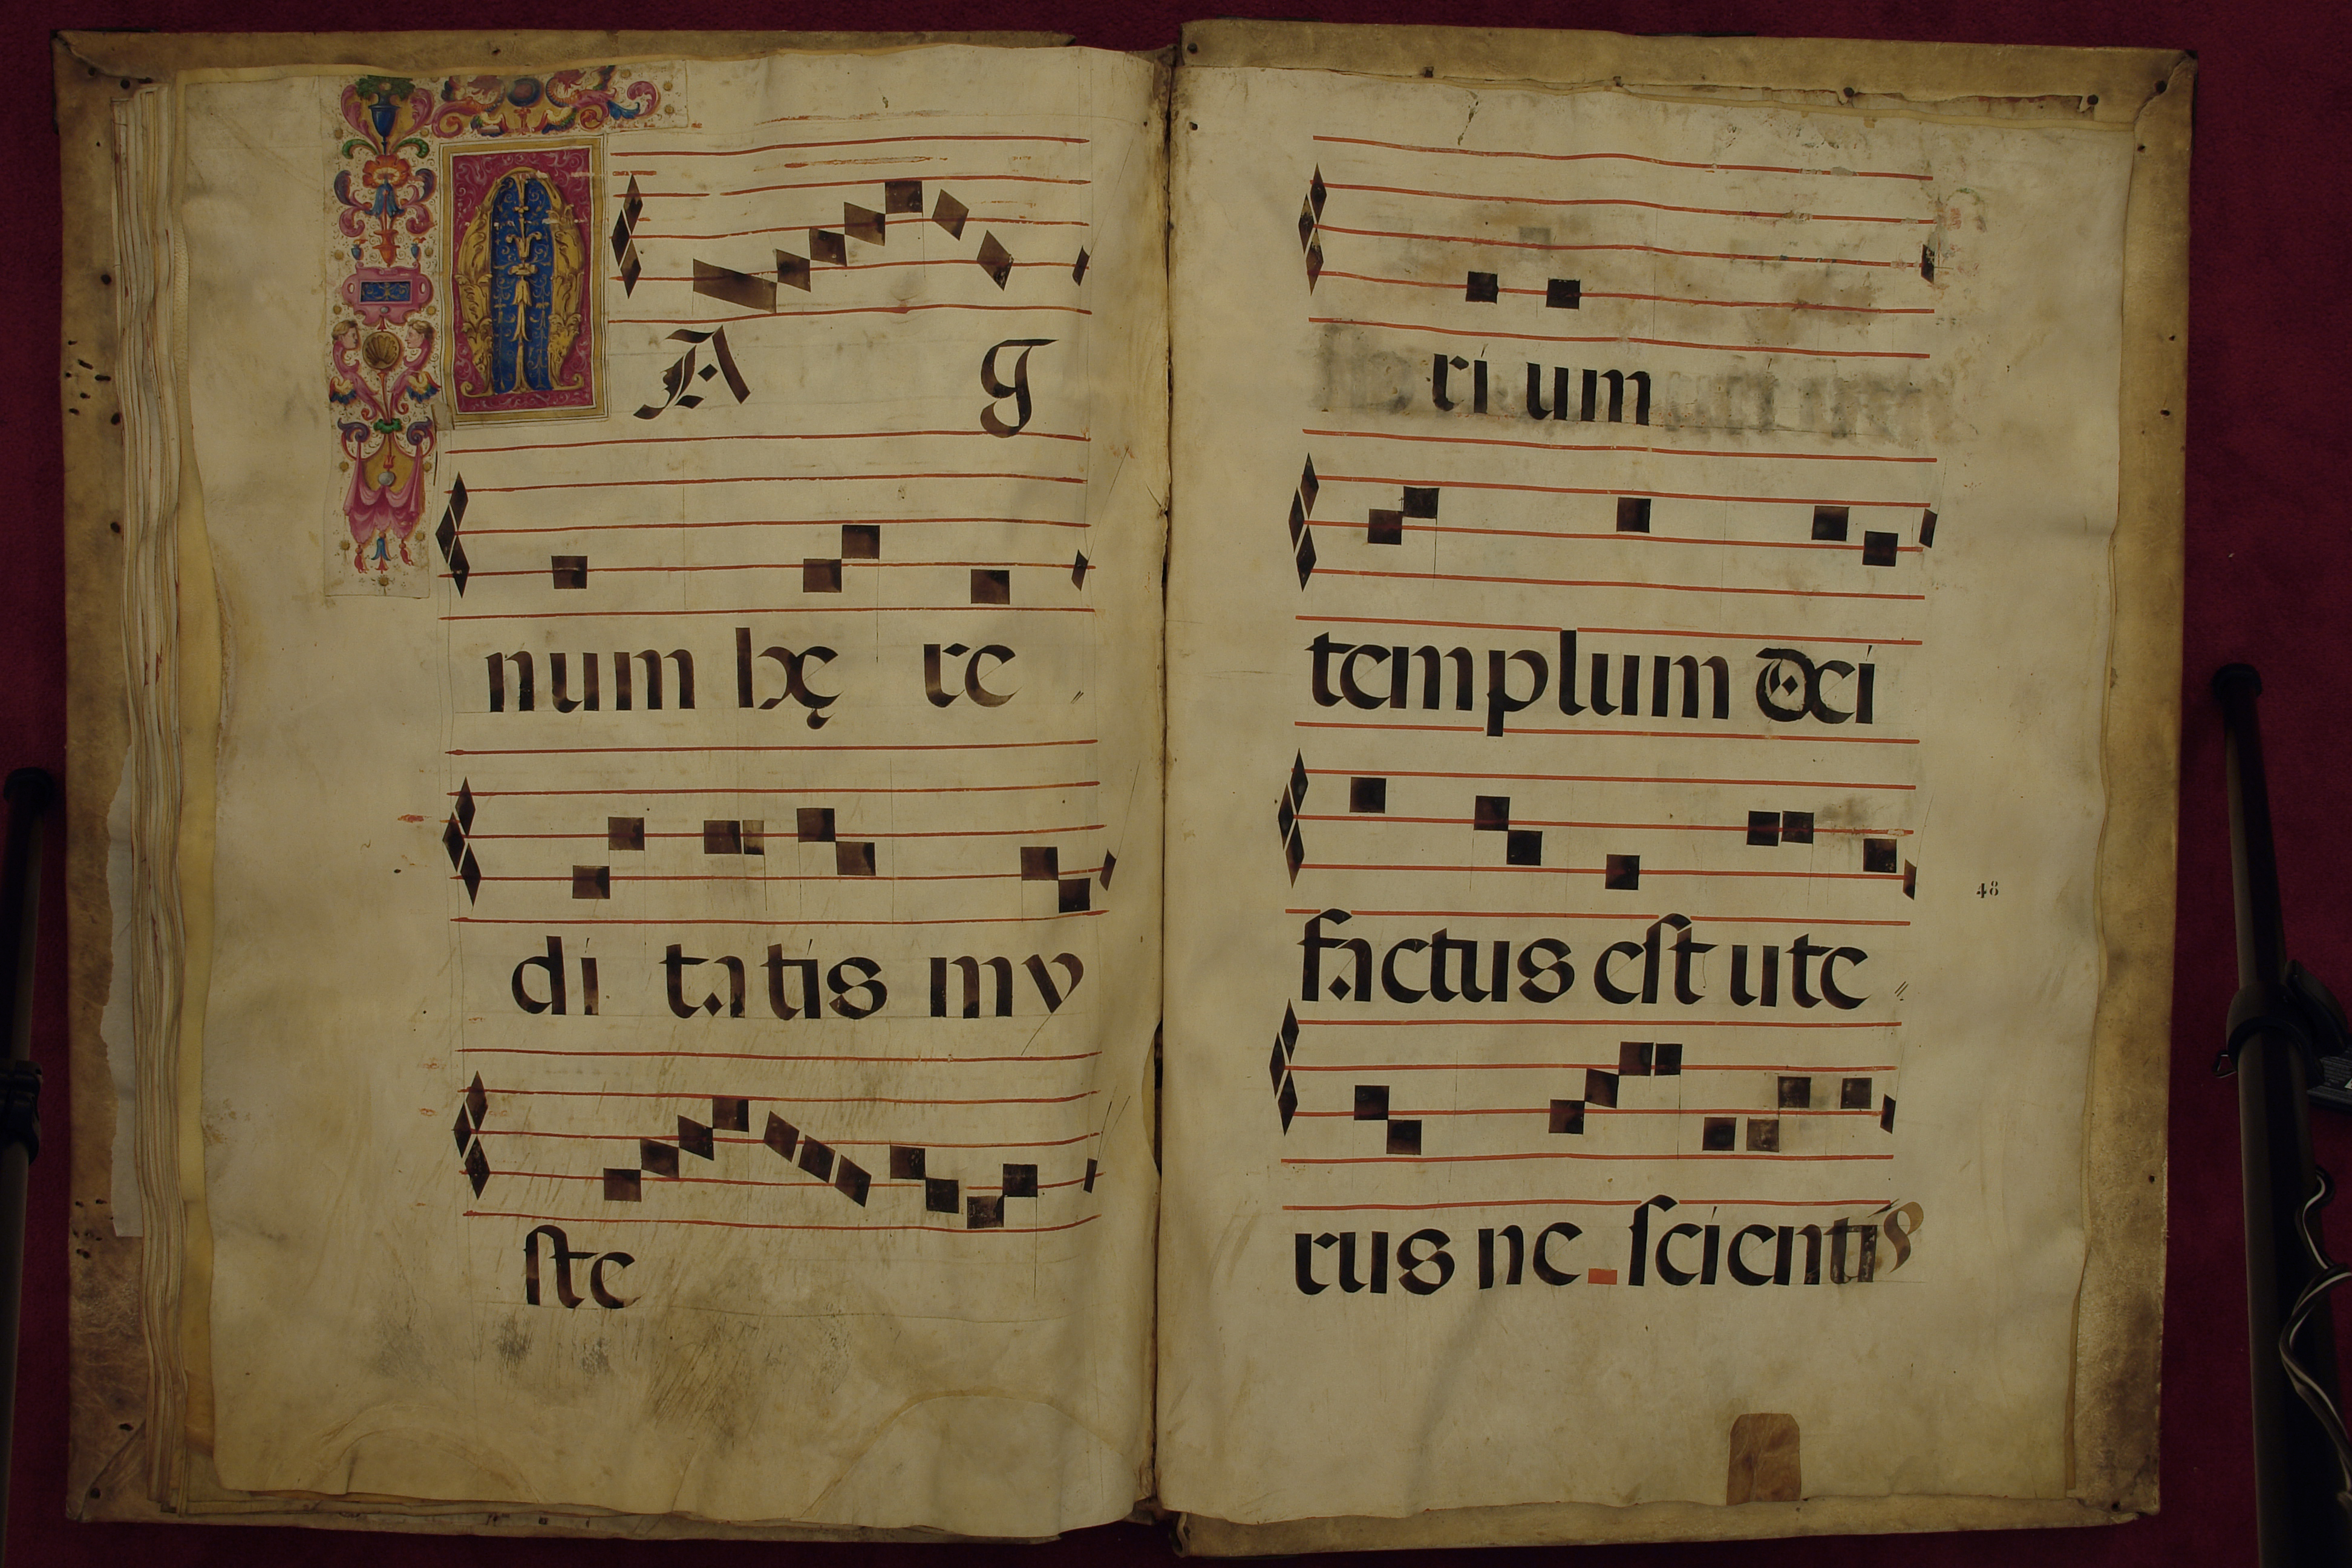 MA g
num hę re
di tatis my
ste
ri um
templum dei
factus est ute
48
rus ne scientis